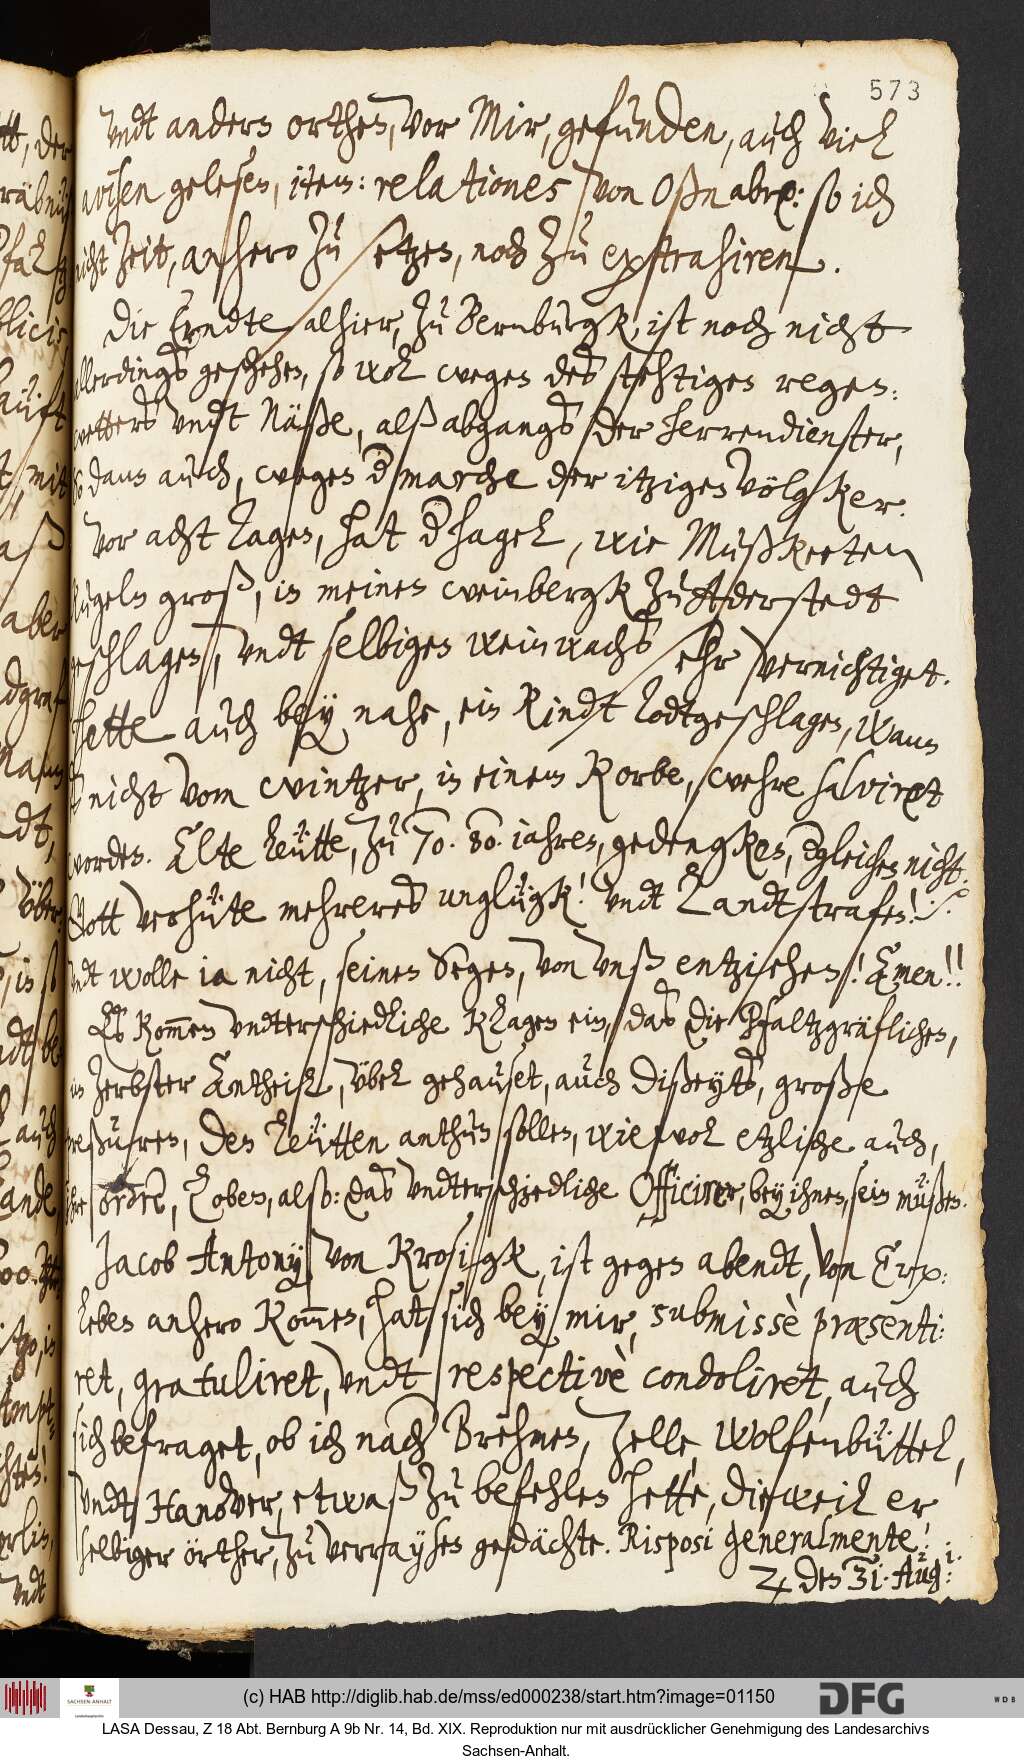 573
undt anders orthen, vor Mir, gefunden, auch viel
avisen gelesen, item: relationes von Oßnabrx: so ich
nicht Zeit, anhero zu setzen, noch zu extrahiren.
Die Erndte alhier, zu Bernburgk, ist noch nicht
allerdings geschehen, so wol wegen des stehtigen regen-
wetters undt Näße, alß abgangs der herrendienster,
so dann auch, wegen d marche der itzigen völgker.
Vor acht tagen, hat d hagel, wie Mußkeeten
kugeln groß, in meinen weinbergk zu Aderstedt
geschlagen, undt selbigen weinwachs sehr vernichtiget.
hette auch bey nahe, ein Kindt todtgeschlagen, wann
es nicht vom wintzer, in einem Korbe, wehre salviret
worden. Elte leütte, zu 70. 80. iahren, gedengken, dgleichen nicht.
Gott verhüte mehreres unglügk! undt Landtstrafen! /.
undt wolle ia nicht, seinen Segen, von unß entziehen! Amen!!
Es kommen undterschiedliche klagen ein, das die Pfaltzgräflichen,
im Zerbster Antheil, übel gehauset, auch dißeyts, große
preßuren, den leütten anthun sollen, wiewol etzliche auch,
ihre ordre, loben, also: das undterschiedliche Officirer, bey ihnen, sein müßen.
Jacob Antony von Krosigk, ist gegen abendt, von Erx-
leben anhero kommen, hat sich bey mir, submissè præsenti-
ret, gratuliret, undt respectivè condoliret, auch
sich befraget, ob ich nach Brehmen, Zelle, Wolfenbüttel,
undt Hanover, etwaß zu befehlen hette, dieweil er
selbiger örther, zu verraysen gedächte. Risposi generalmente.
♃ den 31. Aug:
(c) HAB http://diglib.hab.de/mss/ed000238/start.htm?image=01150
DFG
WDB
SACHSEN-ANHALT
LASA Dessau, Z 18 Abt. Bernburg A 9b Nr. 14, Bd. XIX. Reproduktion nur mit ausdrücklicher Genehmigung des Landesarchivs
Sachsen-Anhalt.